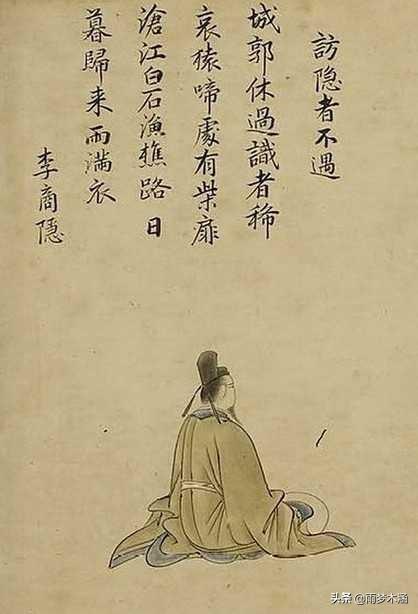 訪隐者不遇
城郭休過識者稀
哀猿啼處有柴扉
滄江白石漁樵路日
暮歸来雨満衣
李商隱
头条 @雨梦木涵